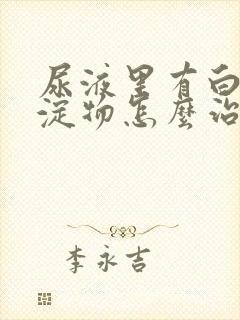 尿液里有白
淀物怎麽治
李永吉